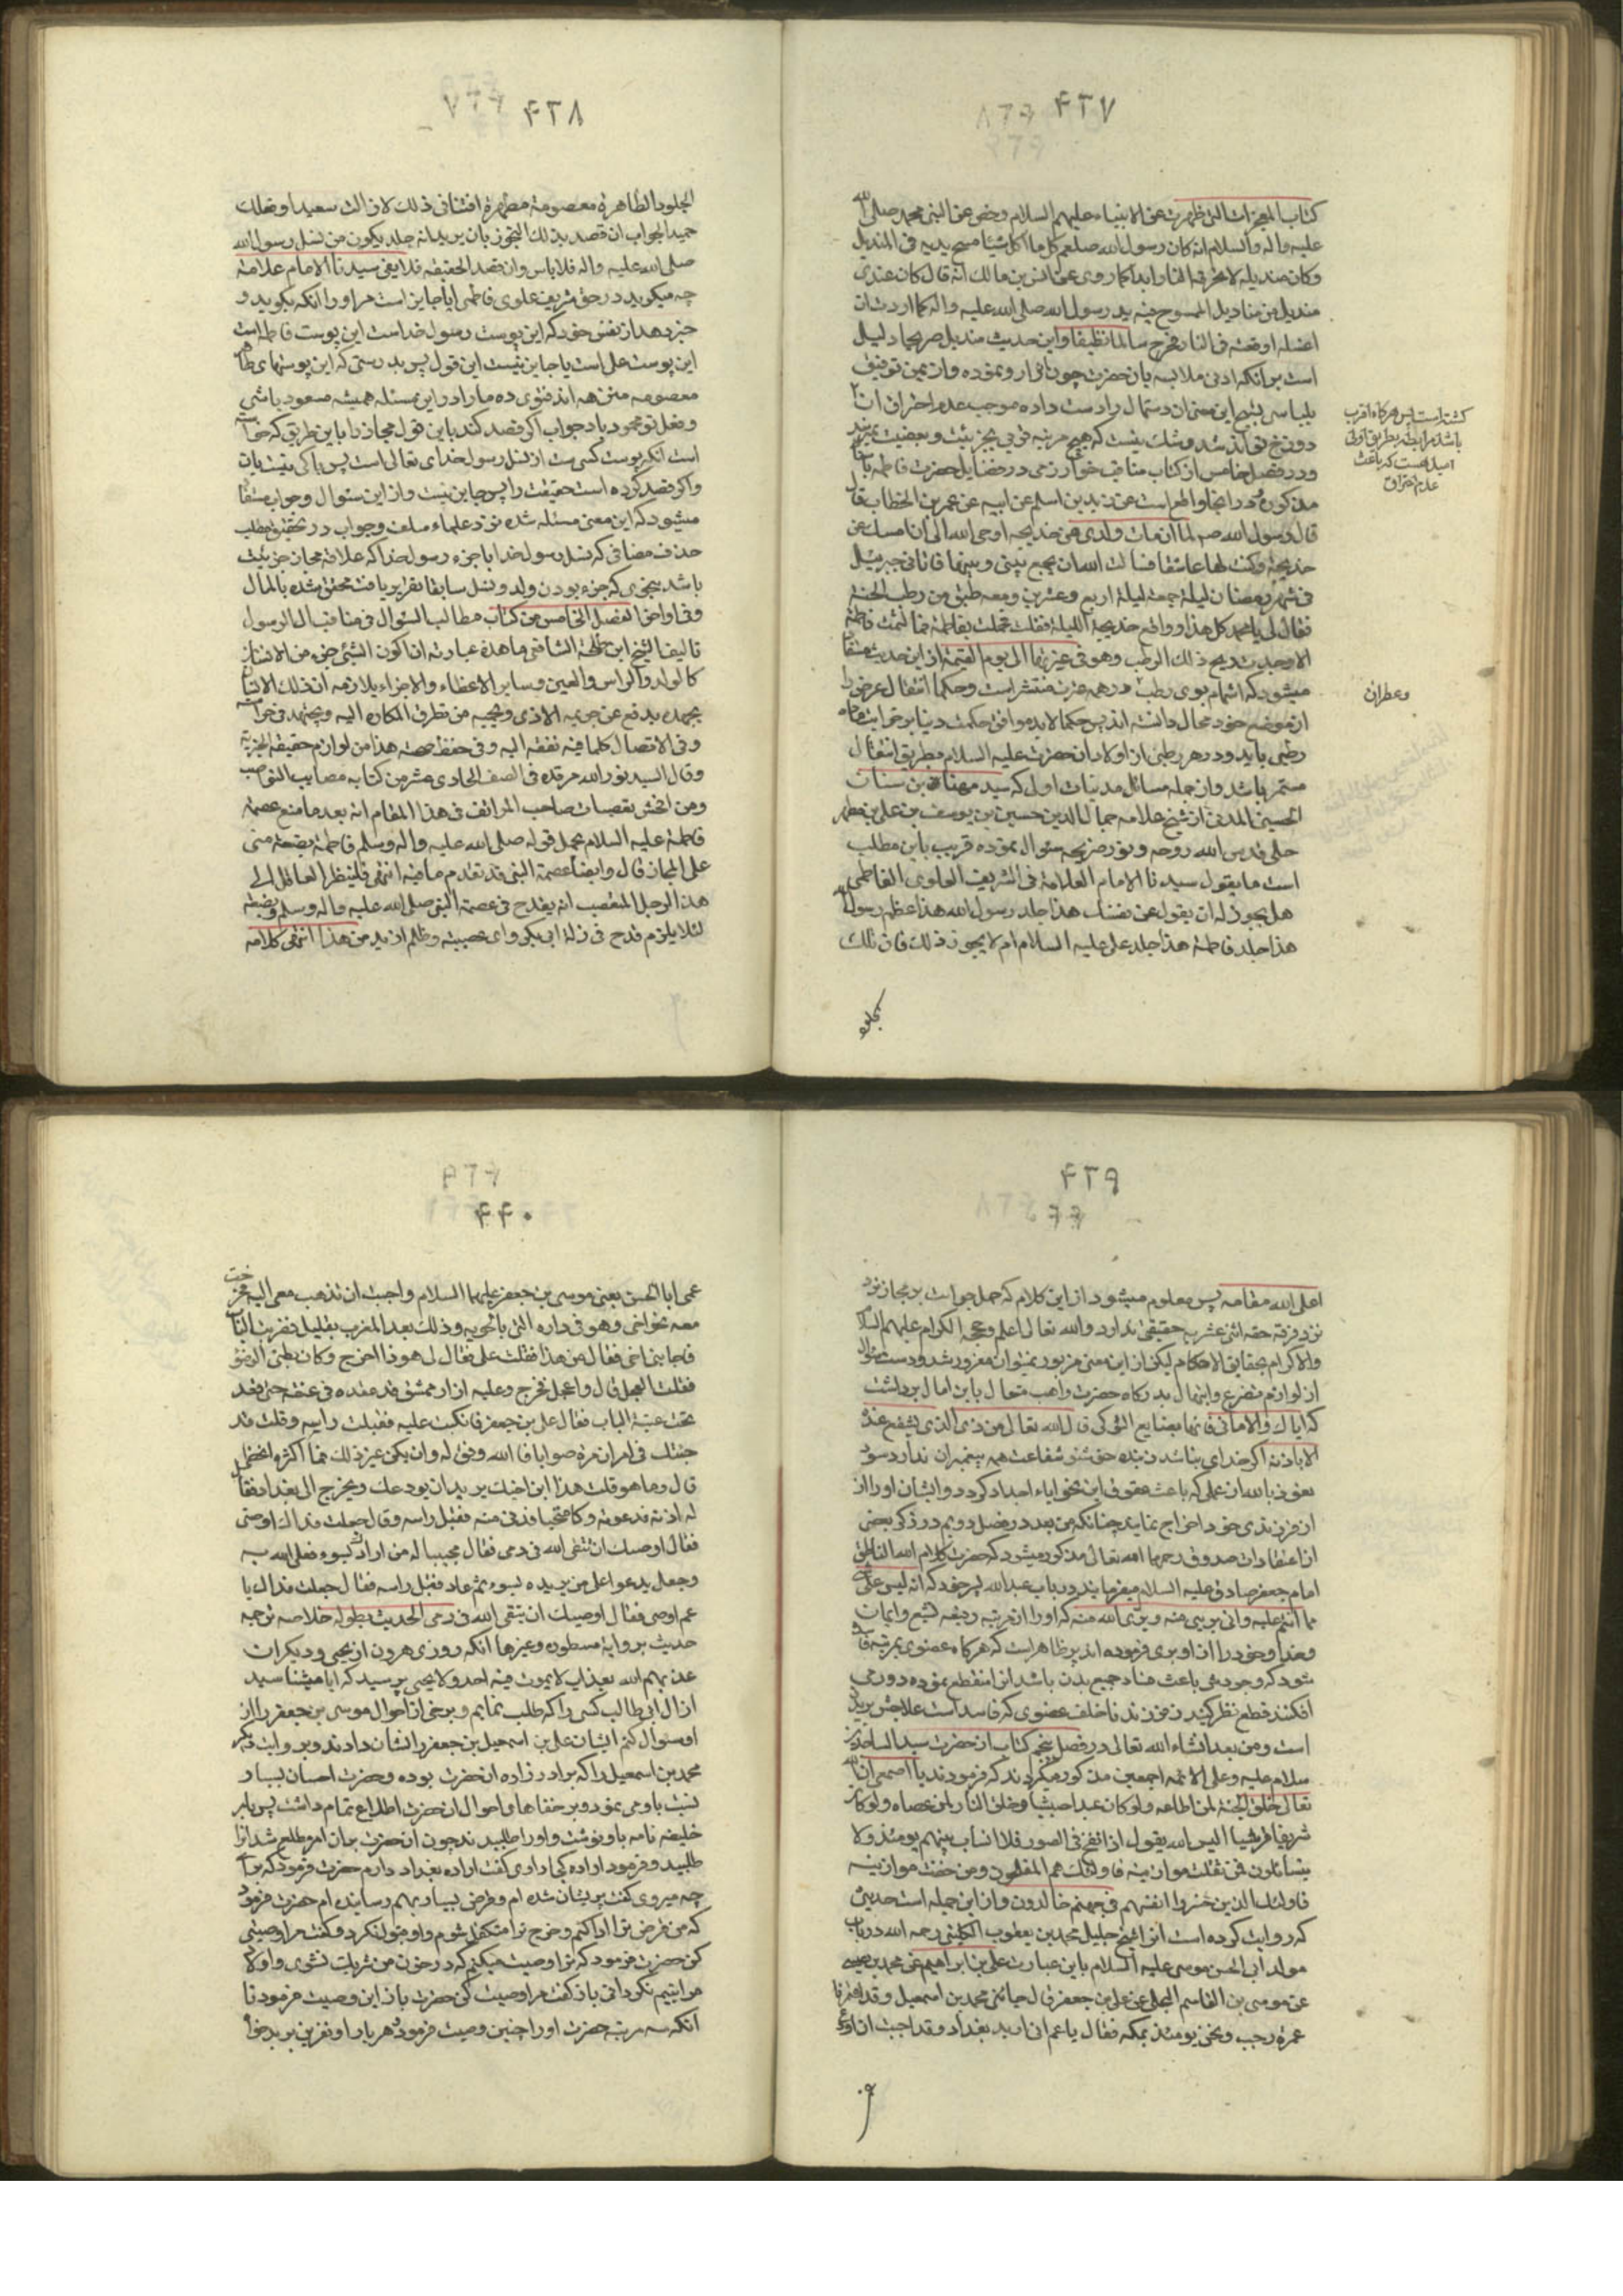 ۴۲۷
كتاب المعجزات التى ظهرت عن الانبياء عليهم السلام وخص عن النبى محمد صلى الله
عليه واله والسلام انه كان رسول الله صلعم كل ما اكل شيئا مسح يديه فى المنديل
وكان منديله لا تحرقه النار ابدا كما روى عن انس بن مالك انه قال كان عندى
منديل من مناديل الممسوح فيه يد رسول الله صلى الله عليه واله كما اردت ان
اغسله اوقعته فى النار فخرج سالما نظيفا واين حديث منديل صريحا دليل
است بر آنكه ادنى ملابسه بان حضرت چون
دوزخ
ودر فصل خامس از كتاب مناقب خوارزمى در فضايل حضرت فاطمه
مذكوره عن زيد بن اسلم عن ابيه عن عمر بن الخطاب قال
قال رسول الله صم لما ان مات ولدى من خديجه اوحى الله الى ان امسك عن
خديجة وكنت لها عاشقا فسالت الله ان يجمع بينى وبينها فاتانى جبرئيل
فى شهر رمضان ليلة جمعة ليلة اربع وعشرين ومعه طبق من رطب الجنة
فقال لى يا محمد كل هذا وواقع خديجة الليلة ففعلت فحملت بفاطمة فما لثمت فاطمة
الا وجدت ريح ذلك الرطب وهو فى عترتها الى يوم القيمة از اين حديث
ميشود كه اشمام بوى رطب در همه عترت منتشر است وحكما انتقال عرض را
از موضع خود محال دانسته اند پس حكما لابد موافق حكمت
رطبى بايد ودر هر رطبى از اولاد ان حضرت عليه السلام بطريق انتقال
مستمر باشد واز جمله مسائل مدنيات اول كه سيد مهنا بن سنان
الحسينى المدنى از شيخ علامه جمال الدين حسين بن يوسف بن على بن مطهر
حلى قدس الله روحه ونور ضريحه سئوال نموده قريب باين مطلب
است ما يقول سيدنا الامام العلامة فى الشريف العلوى الفاطمى
هل يجوز له ان يقول عن نفسك هذا جلد رسول الله هذا عظم رسول
هذا جلد فاطمة هذا جلد على عليه السلام ام لا يجوز ذلك فان تلك
كشته است پس هركاه اقرب
باشد مرابطه بطريق اولى
اميد هست كه باعث
عدم احتراق
وعطران
۴۲۸
الجلود الطاهرة معصومة مطهرة افتنا فى ذلك لا زالت سعيدا وفعلك
حميدا جواب ان قصد بذلك التجوز بان يريد انه جلد يكون من نسل رسول الله
صلى الله عليه واله فلا باس وان قصد الحقيقه فلا يعنى سيدنا الامام علامة
چه ميكويد در حق شريف علوى فاطمى ايا جايز است مر او را آنكه بكويد و
خبر دهد از نفس خود كه اين پوست رسول خداست اين پوست فاطمه است
اين پوست على است يا جايز نيست اين قول پس بدرستى كه اين پوستهاى طاهره
معصومه منزهه اند فتوى ده ما را در اين مسئله هميشه مسعود باشى
وفعل تو محمود باد جواب اكر قصد كند باين قول مجاز را باين طريق كه
است انكه پوست كسى ست از نسل رسول خداى تعالى است پس باكى نيست بان
واكر قصد كرده است حقيقت را پس جايز نيست واز اين سئوال وجواب
ميشود كه اين معنى مسئله شده نزد علماء سلف وجواب در تحقيق مطلب
حذف مضافى كه نسل رسول خدا يا جزء رسول خدا كه علاقه مجاز جزئيت
باشد بنحوى كه جزء بودن ولد ونسل سابقا بتقرير يافت محقق شده بالمال
وفى اواخر الفصل الخامس من كتاب مطالب السئول فى مناقب ال الرسول
تاليف الشيخ ابن طلحة الشافعى ما هذه عبارته ان كون الشئ جزء من الانسان
كالولد والراس والعين وساير الاعضاء والاجزاء يلازمه ان ذلك الانسان
بجهده يدفع عن جزءه الاذى ويحميه من تطرق المكاره اليه ويجتهد فى
وفى الاتصال كلما فيه نفعه اليه وفى حفظ صحته هذا من لوازم حقيقة الجزئية
وقال السيد نور الله مرقده فى الصف الحادى عشر من كتابه مصايب النواصب
ومن افحش تعصبات صاحب المواقف فى هذا المقام انه بعد ما منع عصمة
فاطمة عليه السلام بحمل قوله صلى الله عليه واله وسلم فاطمة بضعة منى
على المجاز قال وايضا عصمة النبى قد تقدم ما فيه انتهى فلينظر العاقل الى
هذا الرجل المتعصب انه يقدح فى عصمة النبى صلى الله عليه واله وسلم وبضعته
لئلا يلزم قدح فى زلة ابى بكر واى عصبية وظلم ازيد من هذا انتهى كلامه
۴۲۹
اعلى الله مقامه پس معلوم ميشود از اين كلام كه حمل جواب بر مجاز نزد
نزد فرقه حقه اثنى عشريه حقيقى ندارد والله تعالى اعلم وحججه الكرام عليهم السلام
والاكرام بحقايق الاحكام ليكن از اين معنى مزبور نميتوان مغرور شد ودست
از لوازم تضرع وابتهال بدركاه حضرت واهب متعال باين امال برداشت
كه اياك والامانى فانها بضايع النوكى قال الله تعالى من ذى الذى يشفع عنده
الا باذنه اكر خداى نباشد ز بنده خشنود شفاعت همه پيغمبران ندارد سود
نعوذ بالله از عملى كه باعث عقوق اين نحو اباء اجداد كردد وايشان او را از
از فرزندى خود اخراج نمايند چنانكه من بعد در فصل دويم در ذكر بعضى
از اعتقادات صدوق رحمه الله تعالى مذكور ميشود كه حضرت كلام الله الناطق
امام جعفر صادق عليه السلام ميفرمايند در باب عبدالله پسر خود كه انه ليس على
ما انتم عليه وانى برئ منه وبرى الله منه كه او را از مرتبه رفيعه تشيع وايمان
وخدا وخود را از او برى فرموده اند پر ظاهر است كه هركاه عضوى بمرتبه
شود كه وجود وى باعث فساد جميع بدن باشد انرا منقطع نموده دور مى
افكنند قطع نظر كنيد ز فرزند ناخلف عضوى كه فاسد است علاجش بريدن
است ومن بعد انشاء الله تعالى در فصل پنجم كتاب از حضرت سيد الساجدين
سلام عليه وعلى الائمه اجمعين مذكور ميكردند كه فرمودند يا اصمعى ان الله
تعالى خلق الجنة لمن اطاعه ولو كان عبدا حبشيا وخلق النار لمن عصاه ولو كان
شريفا قرشيا اليس الله يقول اذا نفخ فى الصور فلا انساب بينهم يومئذ ولا
يتسائلون فمن ثقلت موازينه فاولئك هم المفلحون ومن خفت موازينه
فاولئك الذين خسروا انفسهم فى جهنم خالدون واز اين جمله است حديثى
كه روايت كرده است انرا شيخ جليل محمد بن يعقوب الكلينى رحمه الله در باب
مولد ابى الحسن موسى عليه السلام باين عبارت على بن ابراهيم عن محمد بن عيسى
عن موسى بن القاسم البجلى عن على بن جعفر قال جائنى محمد بن اسمعيل وقد اعتمرنا
عمرة رجب ونحن يومئذ بمكة فقال يا عم انى اريد بغداد وقد احببت ان اودع
۴۴۰
عمى ابا الحسن يعنى موسى بن جعفر عليهما السلام واحببت ان تذهب معى اليه فخرجت
معه نحو اخى وهو فى داره التى بالحوبه وذلك بعد المغرب بقليل فضربت الباب
فاجابنى اخى فقال من هذا فقلت على فقال لى هوذا اخرج وكان بطئ الوضوء
فقلت العجل قال واعجل فخرج وعليه ازار ممشق قد عقده فى عنقه حتى قعد
تحت عتبة الباب فقال على بن جعفر فانكبت عليه فقبلت راسه وقلت قد
جئتك فى امر ان تره صوابا فالله وفق له وان يكن غير ذلك فما اكثر ما نخطى
قال وما هو قلت هذا ابن اخيك يريد ان يودعك ويخرج الى بغداد فقال
له ادنه فدعوته وكان متنحيا فدنى منه فقبل راسه وقال جعلت فداك اوصنى
فقال اوصيك ان تتقى الله فى دمى فقال مجيبا له من ارادك بسوء فعل الله به
وجعل يدعو على من يريده بسوء ثم عاد فقبل راسه فقال جعلت فداك يا
عم اوصنى فقال اوصيك ان تتقى الله فى دمى الحديث بطوله خلاصه ترجمه
حديث بروايه مسطوره وغيرها آنكه روزى هرون از يحيى وديكران
عذبهم الله بعذاب لا يموت فيه احد ولا يحيى پرسيد كه ايا ميشناسيد
از ال ابى طالب كسى را كه طلب نمايم وبرخى از احوال موسى بن جعفر را از
او سئوال كنم ايشان على بن اسمعيل بن جعفر را نشان دادند وبروايت ديكر
محمد بن اسمعيل را كه برادرزاده ان حضرت بوده وحضرت احسان بسيار
نسبت باو مى نمود وبر خفاها واحوال ان حضرت اطلاع تمام داشت پس بامر
خليفه نامه باو نوشت واورا طلبيدند چون ان حضرت بران امر مطلع شد انرا
طلبيد وفرمود اراده كجا دارى كفت اراده بغداد دارم حضرت فرمود كه براى
چه ميروى كفت پريشان شده ام وقرض بسيار بهم رسانيده ام حضرت فرمود
كه من قرض ترا ادا كنم وخرج ترا متكفل شوم واو قبول نكرد وكفت مرا وصيتى
كن حضرت فرمود كه ترا وصيت ميكنم كه در خون من شريك نشوى واولاد
مرا يتيم نكردانى باز كفت مرا وصيت كن حضرت باز اين وصيت فرمود تا
آنكه سه مرتبه حضرت او را چنين وصيت فرمود